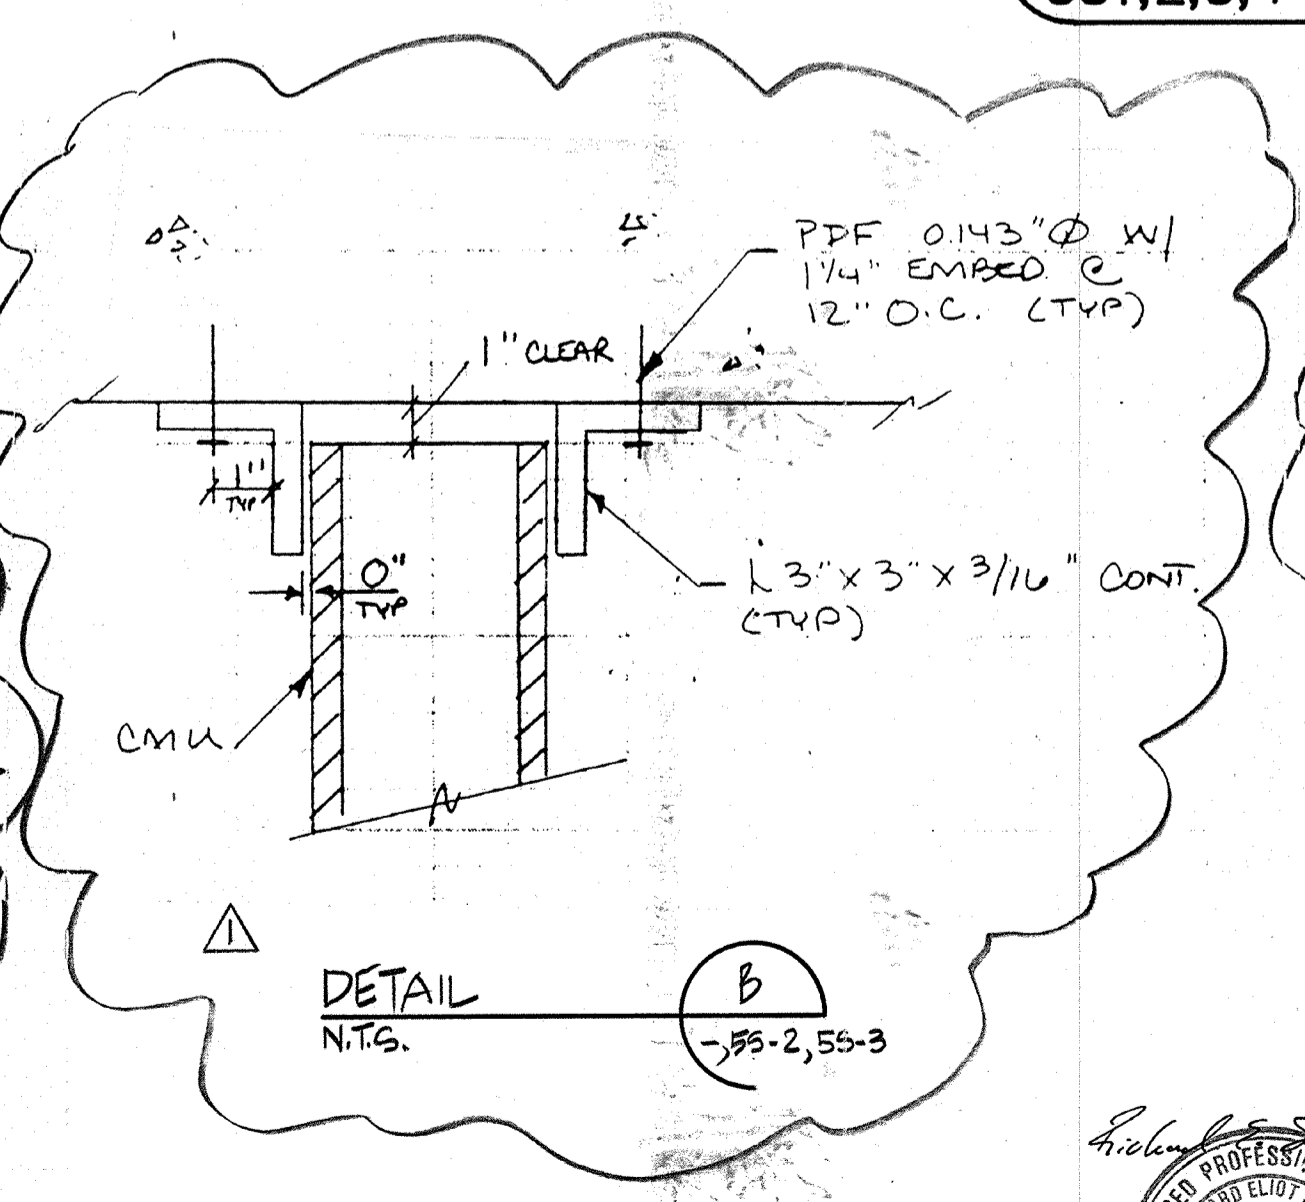 PDF 0.143"Ø W/
1 1/4" EMBED @
12" O.C. (TYP)
1" CLEAR
1"
TYP
0"
TYP
L 3" x 3" x 3/16" CONT.
(TYP)
CMU
1
DETAIL
N.T.S.
B
-,5S-2,5S-3
PROFESSI
ELIOT